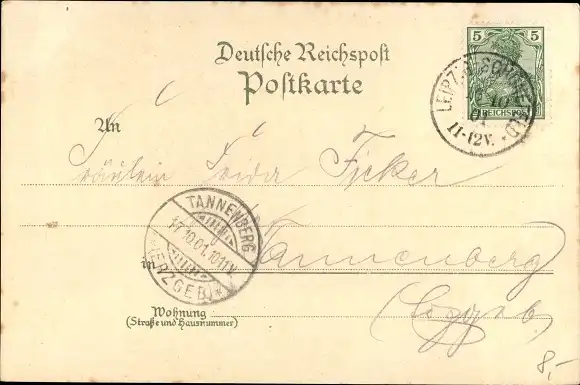 5 5
REICHSPOST
Deutsche Reichspost
Postkarte
LEIPZIG-SCHÖNEFELD
10 01
11-12V.
An
Fräulein Frida Ficker
TANNENBERG
17.10.01.1011V.
*(ERZGEB.)*
in Tannenberg
(Erzgeb.)
Wohnung
(Straße und Hausnummer)
8,-